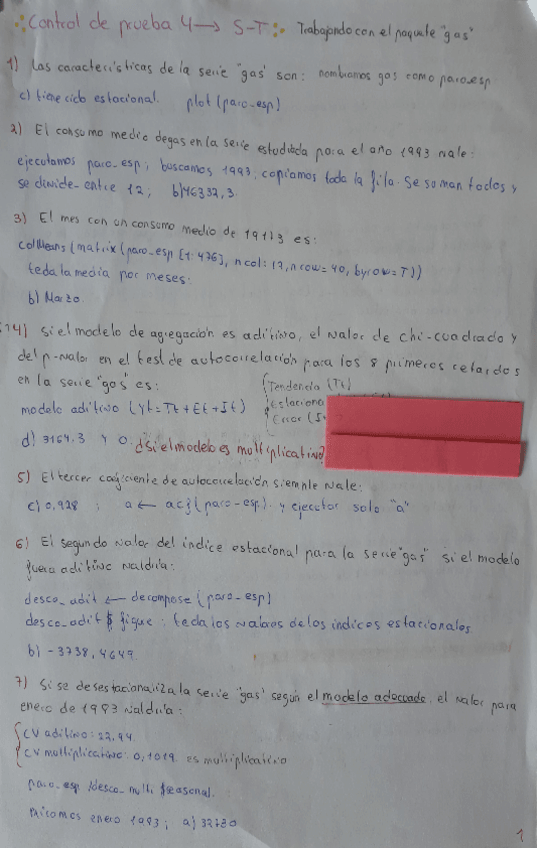 Control de prueba 4 → S-T: Trabajando con el paquete "gas"
1) Las características de la serie "gas" son: nombramos gas como paro-esp
c) tiene ciclo estacional. plot (paro-esp)
2) El consumo medio de gas en la serie estudiada para el año 1993 vale:
ejecutamos paro-esp; buscamos 1993; copiamos toda la fila. Se suman todos y
se divide entre 12; b) 46332,3.
3) El mes con un consumo medio de 19113 es:
colMeans (matrix (paro-esp [1:476], ncol=12, nrow=40, byrow=T))
te da la media por meses:
b) Marzo.
4) Si el modelo de agregación es aditivo, el valor de chi-cuadrado y
del p-valor en el test de autocorrelación para los 8 primeros retardos
en la serie "gas" es:
modelo aditivo (Yt = Tt + Et + It) { Tendencia (Tt)
Estaciona
Error (I
d) 3164.3 y 0 ¿Si el modelo es multiplicativo?
5) El tercer coeficiente de autocorrelación simple vale:
c) 0,928 ; a ← acf (paro-esp). y ejecutar solo "a"
6) El segundo valor del índice estacional para la serie "gas" si el modelo
fuera aditivo valdría:
desco_adit ← decompose (paro-esp)
desco_adit $ figure: te da los valores de los índices estacionales.
b) -3738,4649.
7) Si se desestacionaliza la serie "gas" según el modelo adecuado, el valor para
enero de 1993 valdría:
{ CV aditivo: 22,94.
CV multiplicativo: 0,1019. es multiplicativo
paro-esp /desco_mult $seasonal.
miramos enero 1993; a) 32780
1